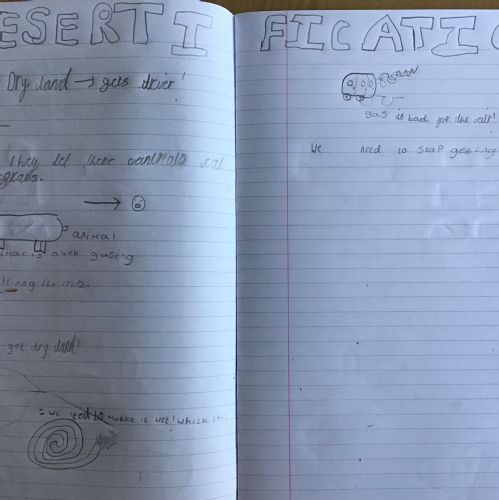 ESERTI FICATIC
Dry land → gets drier!
They let there animals eat
grass.
animal
is over gasing
the
got dry land!
= we need to make it wet! which
gas is bad for the
We need to stop geting